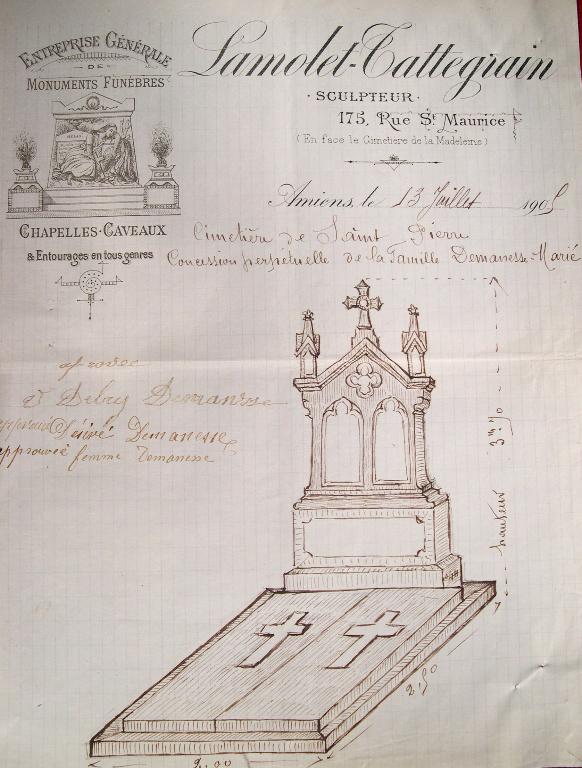 ENTREPRISE GÉNÉRALE
DE
MONUMENTS FUNÈBRES
CHAPELLES-CAVEAUX
& Entourages en tous genres
Lamolet-Tattegrain
· SCULPTEUR ·
175, Rue St Maurice
(En face le Cimetière de la Madeleine)
Amiens, le 13 Juillet 1905
Cimetière de Saint Pierre
Concession perpetuelle de la famille Demanesse-Marié
Debry Demanesse
approuvé Désiré Demanesse
approuvée femme Demanesse
hauteur
2,50
2,00